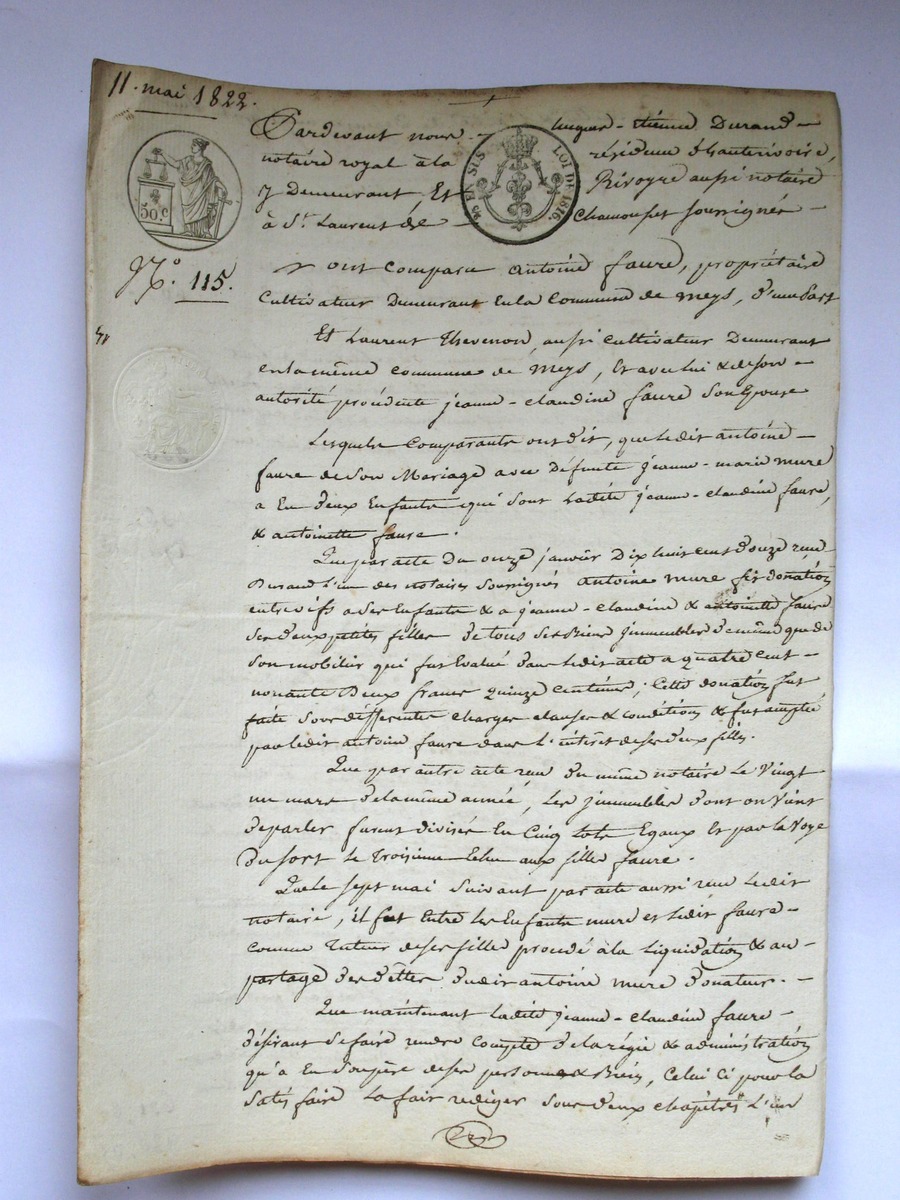 11. mai 1822.
Pardevant nous Jacques-etienne Durand
notaire royal à la résidence d'hauterivoire,
y Demeurant, Et Rivoyre aussi notaire
à St. Laurent de Chamousset soussignés
50.c
EN SUS
LOI DE 1816.
N.o 115.
y ont comparu antoine faure, propriétaire
Cultivateur Demeurant En la Commune de meys, d'une part
Et Laurent Thevenon, aussi cultivateur Demeurant
en la même commune de meys, Et avec lui & de son
autorité procédente jeanne-claudine faure son Epouse
Lesquels Comparants ont dit, que ledit antoine
faure de son Mariage avec Défunte jeanne-marie mure
a Eu deux Enfants qui sont ladite jeanne-claudine faure,
& antoinette faure.
Que par acte du onze janvier Dix huit cent douze reçu
Durand l'un des notaires soussignés antoine mure fit donation
entre vifs a ses Enfants & a jeanne-claudine & antoinette faure
ses deux petites filles de tous ses Biens jmmeubles de même que de
son mobilier qui fut Evalué dans ledit acte a quatre cent
nonante Deux francs quinze centimes; Cette donation fut
faite sous différentes charges clauses & conditions & fut acceptée
par ledit antoine faure dans l'intérêt de ses deux filles.
Que par autre acte reçu du même notaire Le Vingt
un mars de la même année, Les jmmeubles dont on Vient
de parler furent divisés En Cinq lots Egaux Et par la Voye
du sort Le Troisieme Echu aux filles faure.
Que le sept mai suivant par acte aussi reçu ledit
notaire, il fut Entre les Enfants mure et ledit faure
comme tuteur de ses filles procédé à la liquidation & au
partage des dettes dudit antoine mure donateur.
Que maintenant ladite jeanne-claudine faure
désirant se faire rendre compte de la régie & administration
qu'a Eu son père de ses personne & Biens, Celui ci pour la
satisfaire La fait rediger sous deux chapitres L'un